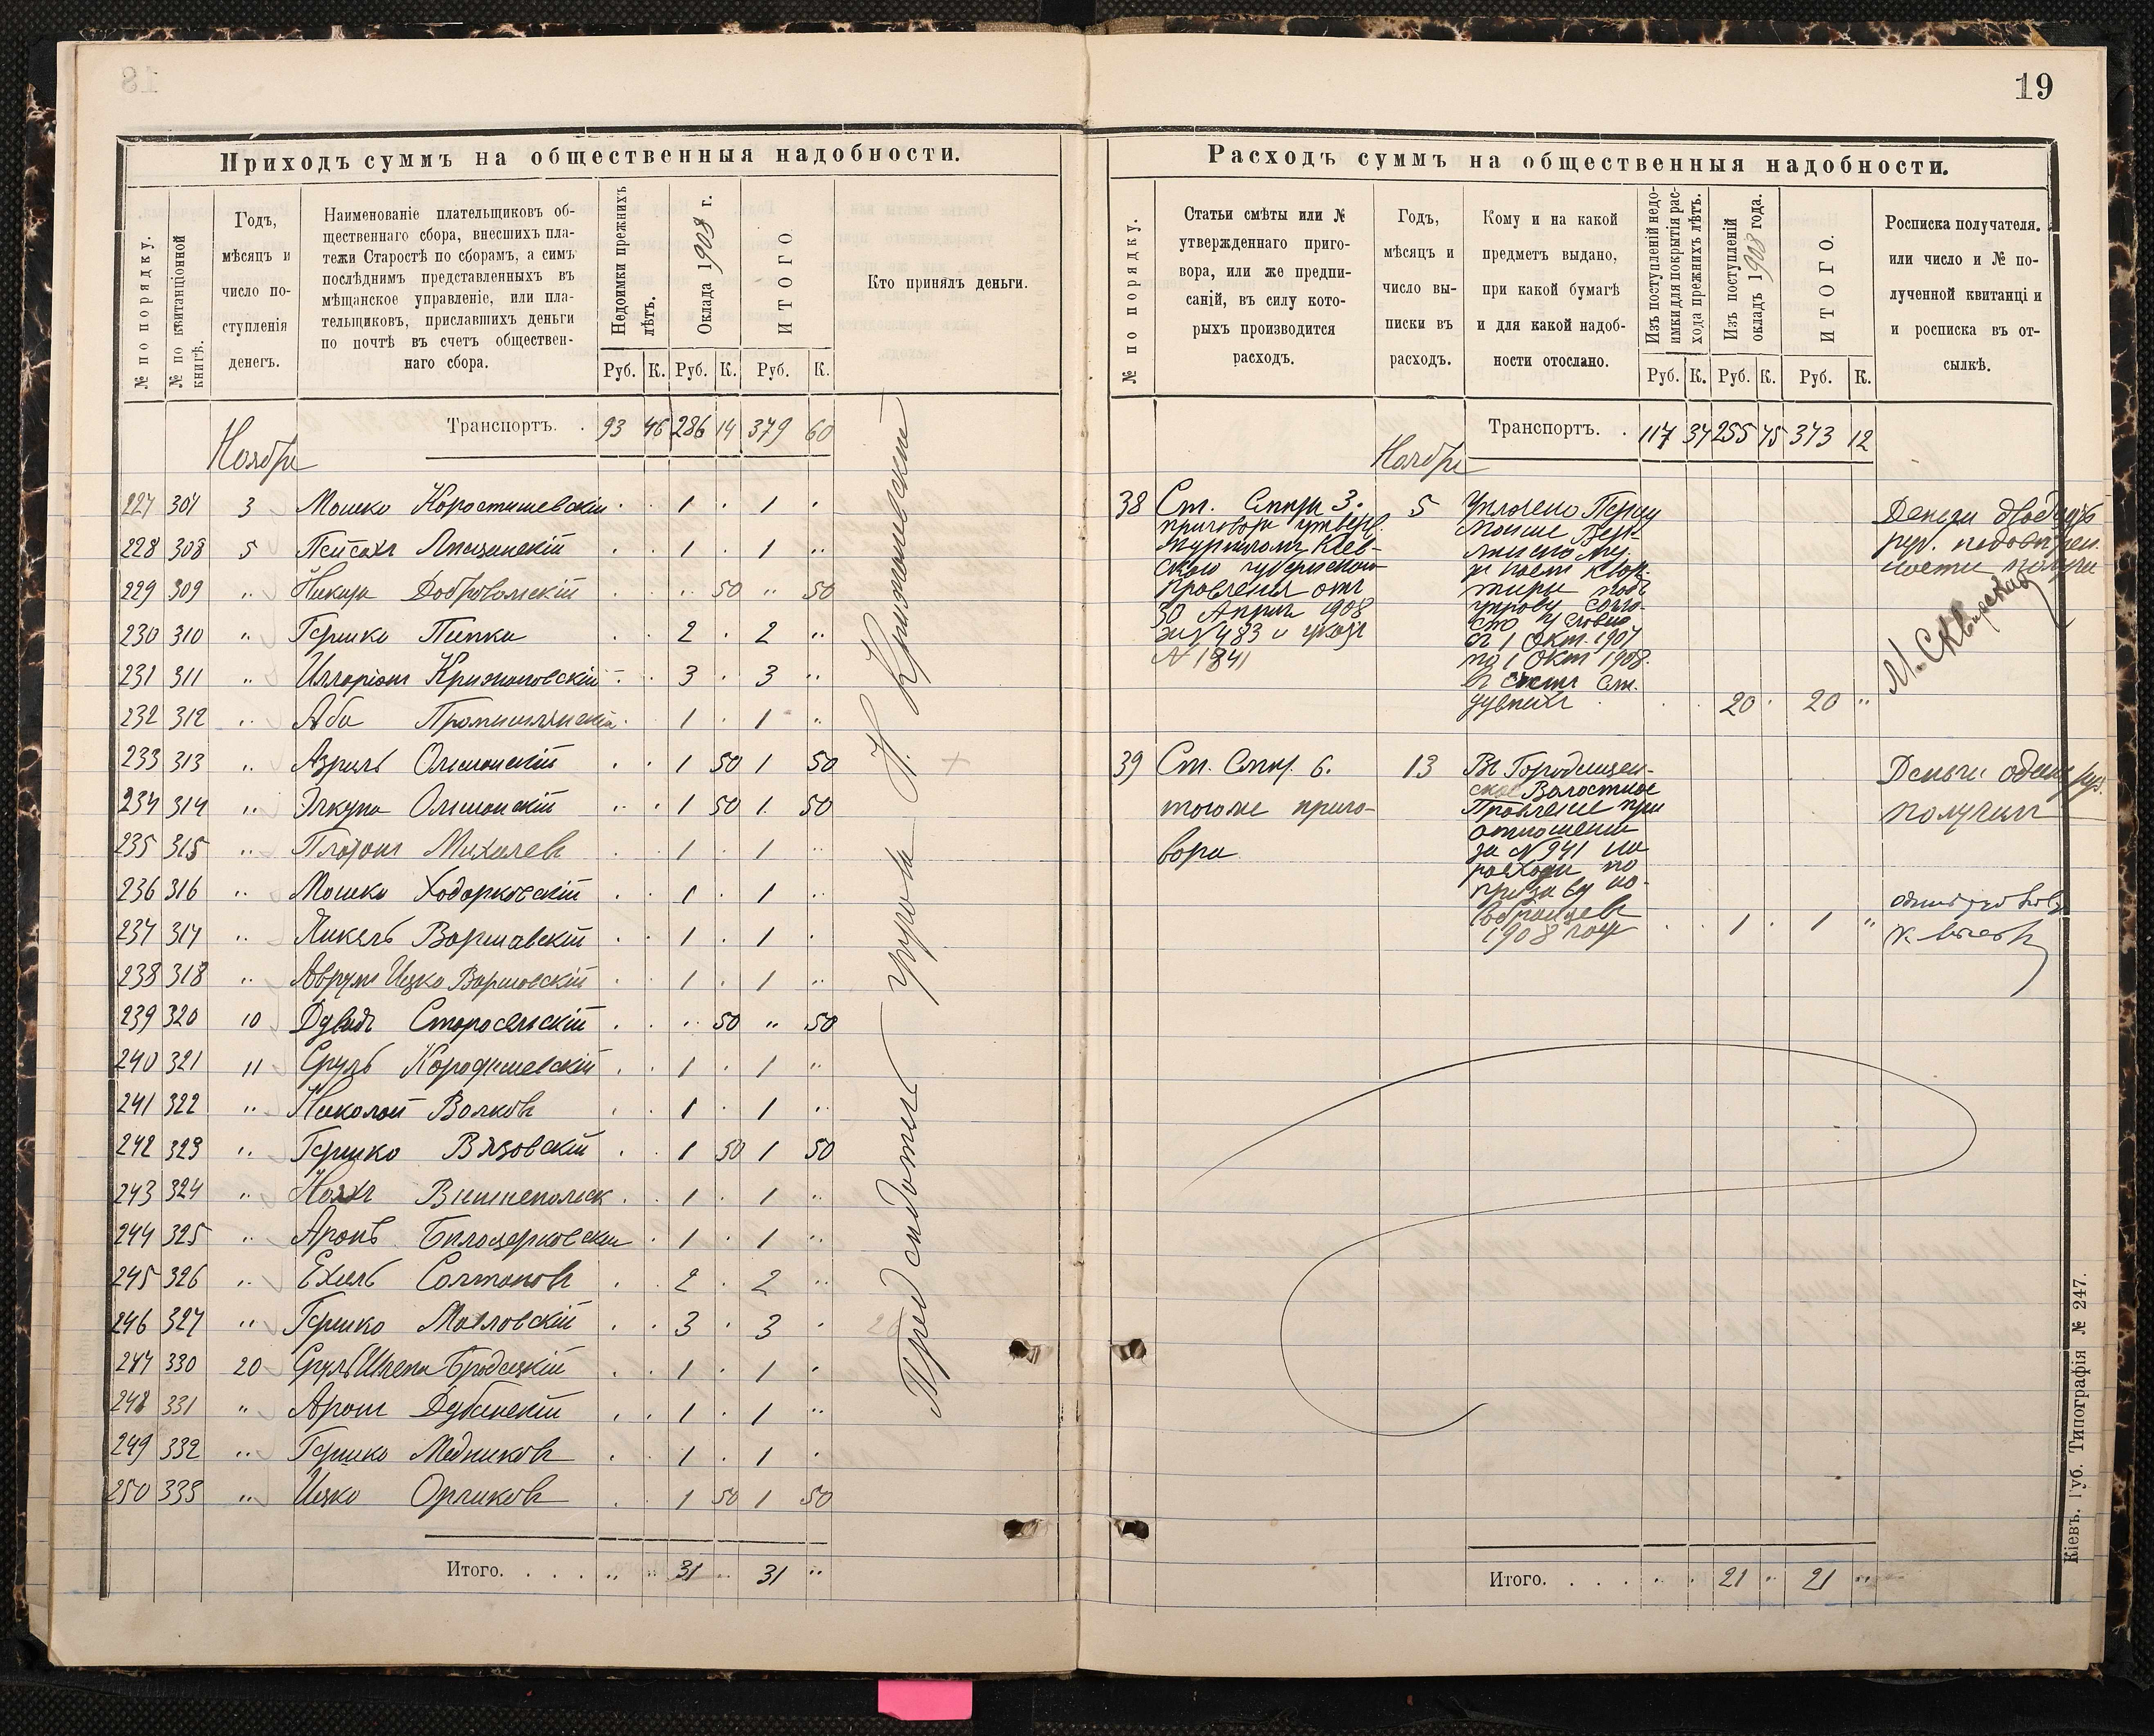 19
Приходъ суммъ на общественныя надобности.
№ по порядку.
№ по квитанціонной книгѣ.
Годъ,
мѣсяцъ и
число по-
ступленія
денегъ.
Наименованіе плательщиковъ об-
щественнаго сбора, внесшихъ пла-
тежи Старостѣ по сборамъ, а симъ
послѣднимъ представленныхъ въ
мѣщанское управленіе, или пла-
тельщиковъ, приславшихъ деньги
по почтѣ въ счетъ обществен-
наго сбора.
Недоимки прежнихъ лѣтъ.
Оклада 1908 г.
ИТОГО
Кто принялъ деньги.
Руб. К. Руб. К. Руб. К.
Транспортъ. . 93 46 286 14 379 60
Ноября
227 307 3 Мошко Коростышевскій 1 . 1 .
228 308 5 Пейсахъ 1 . 1 "
229 309 " Добровольскій " 50 " 50
230 310 " Гершко Пипка 2 . 2 "
231 311 " Илларіонъ Крижановскій 3 . 3 "
232 312 " Аба 1 . 1 "
233 313 " Азриль Ольшанскій 1 50 1 50
234 314 " Элкуна Ольшанскій 1 50 1 50
235 315 " Платонъ Михалевъ 1 . 1 "
236 316 " Мошко Ходорковскій 1 . 1 "
237 317 " Янкель Варшавскій 1 . 1 .
238 318 " Аврумъ Ицко Варшавскій 1 . 1 "
239 320 10 Дувидъ Старосельскій " 50 " 50
240 321 11 Сруль 1 . 1 "
241 322 " Николай Волковъ 1 . 1 "
242 323 " Гершко Вязовскій 1 50 1 50
243 324 " Вишнепольск 1 . 1 "
244 325 " Аронъ Білоцерковскій 1 . 1 "
245 326 " Ехиль Солтановъ 2 . 2 "
246 327 " Гершко Маловскій 3 . 3 .
247 330 20 Сруль Бродецкій 1 . 1 .
248 331 " Аронъ Дубинскій 1 . 1 "
249 332 " Гершко Медниковъ 1 . 1 .
250 333 " Ицко Орликовъ 1 50 1 50
Итого. . . . . " " 31 " 31 "
Крижановскій
Расходъ суммъ на общественныя надобности.
№ по порядку.
Статьи смѣты или №
утвержденнаго приго-
вора, или же предпи-
саній, въ силу кото-
рыхъ производится
расходъ.
Годъ,
мѣсяцъ и
число вы-
писки въ
расходъ.
Кому и на какой
предметъ выдано,
при какой бумагѣ
и для какой надоб-
ности отослано.
Изъ поступленій недо-
имки для покрытія рас-
хода прежнихъ лѣтъ.
Изъ поступленій
окладъ 1908 года.
ИТОГО.
Росписка получателя.
или число и № по-
лученной квитанці и
и росписка въ от-
сылкѣ.
Руб. К. Руб. К. Руб. К.
Транспортъ. . 117 37 255 75 373 12
Ноября
38 Ст. 3. 5 Уплочено
приговора утвержд.
Кіев-
скаго губернскаго
правленія отъ
30 Апрѣля 1908
за № 483 и указъ
№ 1841
управу согла-
сно условію
съ 1 Окт. 1907
по 1 Окт 1908.
20 . 20 "
Деньги двадцать
руб.
М. Сквирская
39 Ст. 6. 13 Въ Городищен-
ское Волостное
тогоже приго-
вора
Правленіе при
отношеніи
за № 941 на
расходы по
призыву но-
вобранцевъ
1908 года 1 . 1 "
Деньги одинъ руб.
получилъ
Итого. . . . . . 21 " 21 "
Кіевъ. Губ. Типографія № 247.